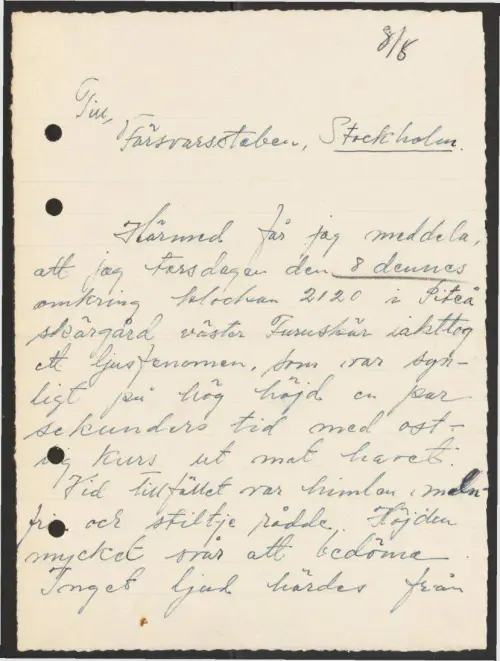 8/8
Till,
Försvarsstaben, Stockholm.
Härmed får jag meddela,
att jag torsdagen den 8 dennes
omkring klockan 2120 i Piteå
skärgård väster Furuskär iakttog
ett ljusfenomen, som var syn-
ligt på hög höjd en par
sekunders tid med ost-
lig kurs ut mot havet.
Vid tillfället var himlen moln-
fri och stiltje rådde. Höjden
mycket svår att bedöma
Inget ljud hördes från